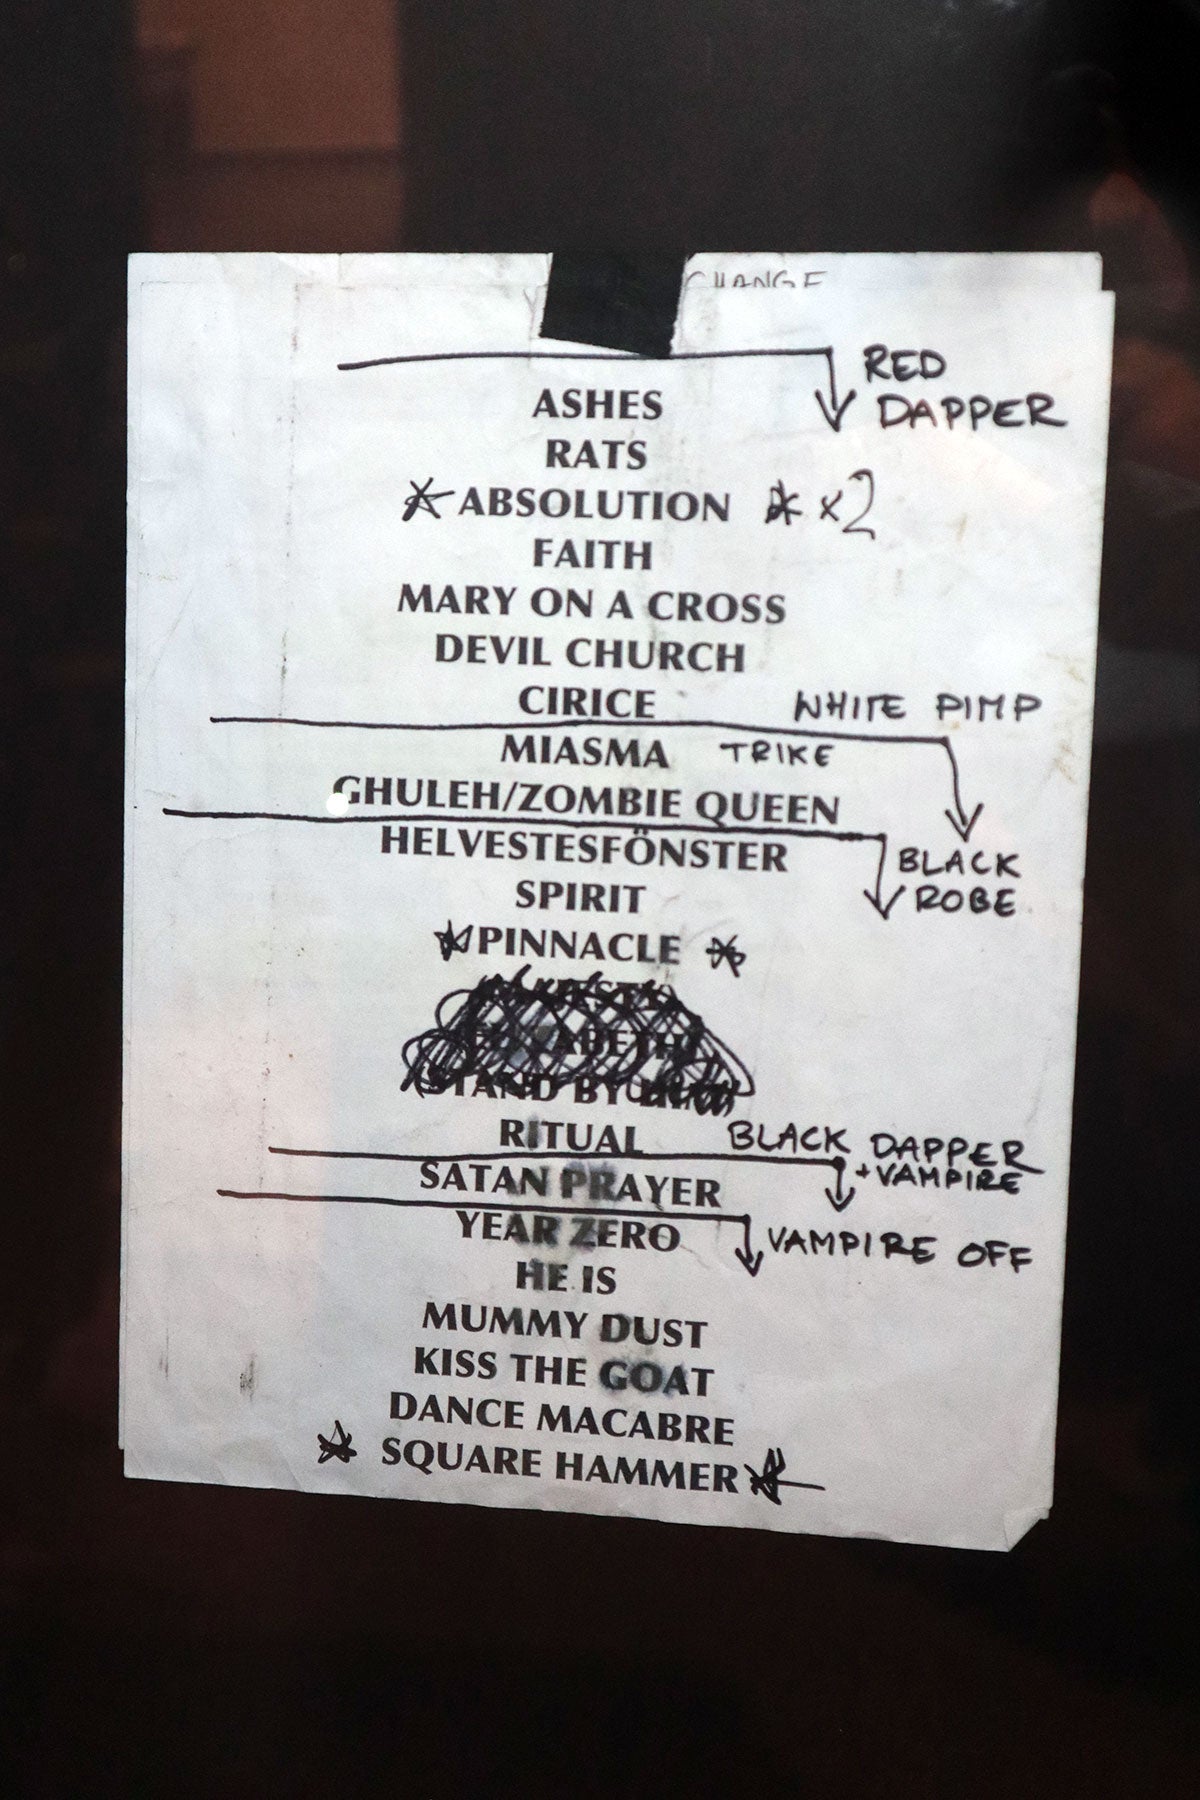 CHANGE
RED
DAPPER
ASHES
RATS
ABSOLUTION x2
FAITH
MARY ON A CROSS
DEVIL CHURCH
CIRICE WHITE PIMP
MIASMA TRIKE
GHULEH/ZOMBIE QUEEN
HELVESTESFÖNSTER BLACK
SPIRIT ROBE
PINNACLE
(STAND BY
RITUAL BLACK DAPPER
SATAN PRAYER + VAMPIRE
YEAR ZERO VAMPIRE OFF
HE IS
MUMMY DUST
KISS THE GOAT
DANCE MACABRE
SQUARE HAMMER